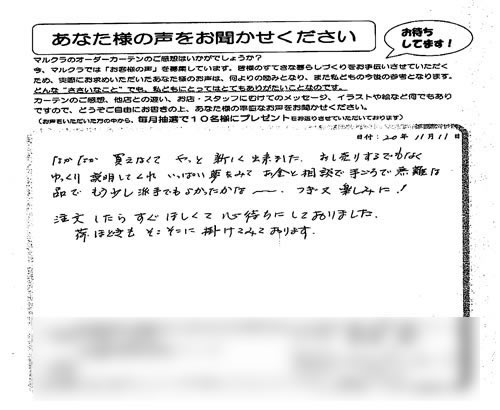 あなた様の声をお聞かせください
お待ち
してます!
マルクラのオーダーカーテンのご感想はいかがでしょうか?
今、マルクラでは「お客様の声」を募集しています。皆様のすてきな暮らしづくりをお手伝いさせていただく
ため、実際にお求めいただいたあなた様のお声は、何よりの励みとなり、また私どもの今後の参考となります。
どんな“ささいなこと”でも、私どもにとってはとてもありがたいことなのです。
カーテンのご感想、他店との違い、お店・スタッフにむけてのメッセージ、イラストや絵など何でもあり
ですので、どうぞご自由にお書きの上、あなた様の率直なお声をお聞かせください。
(お声をいただいた方の中から、毎月抽選で10名様にプレゼントをお送りさせていただいております)
日付:20年11月11日
なかなか 買えなくて やっと 新しく出来ました. おし売りするでもなく
ゆっくり 説明してくれ いっぱい夢をみて お金と相談で 手ごろで無難な
品で もう少し派手でもよかったかな〜. つぎを楽しみに!
注文したらすぐほしくて 心待ちにしておりました.
荷ほどきも そこそこに 掛けてみております.